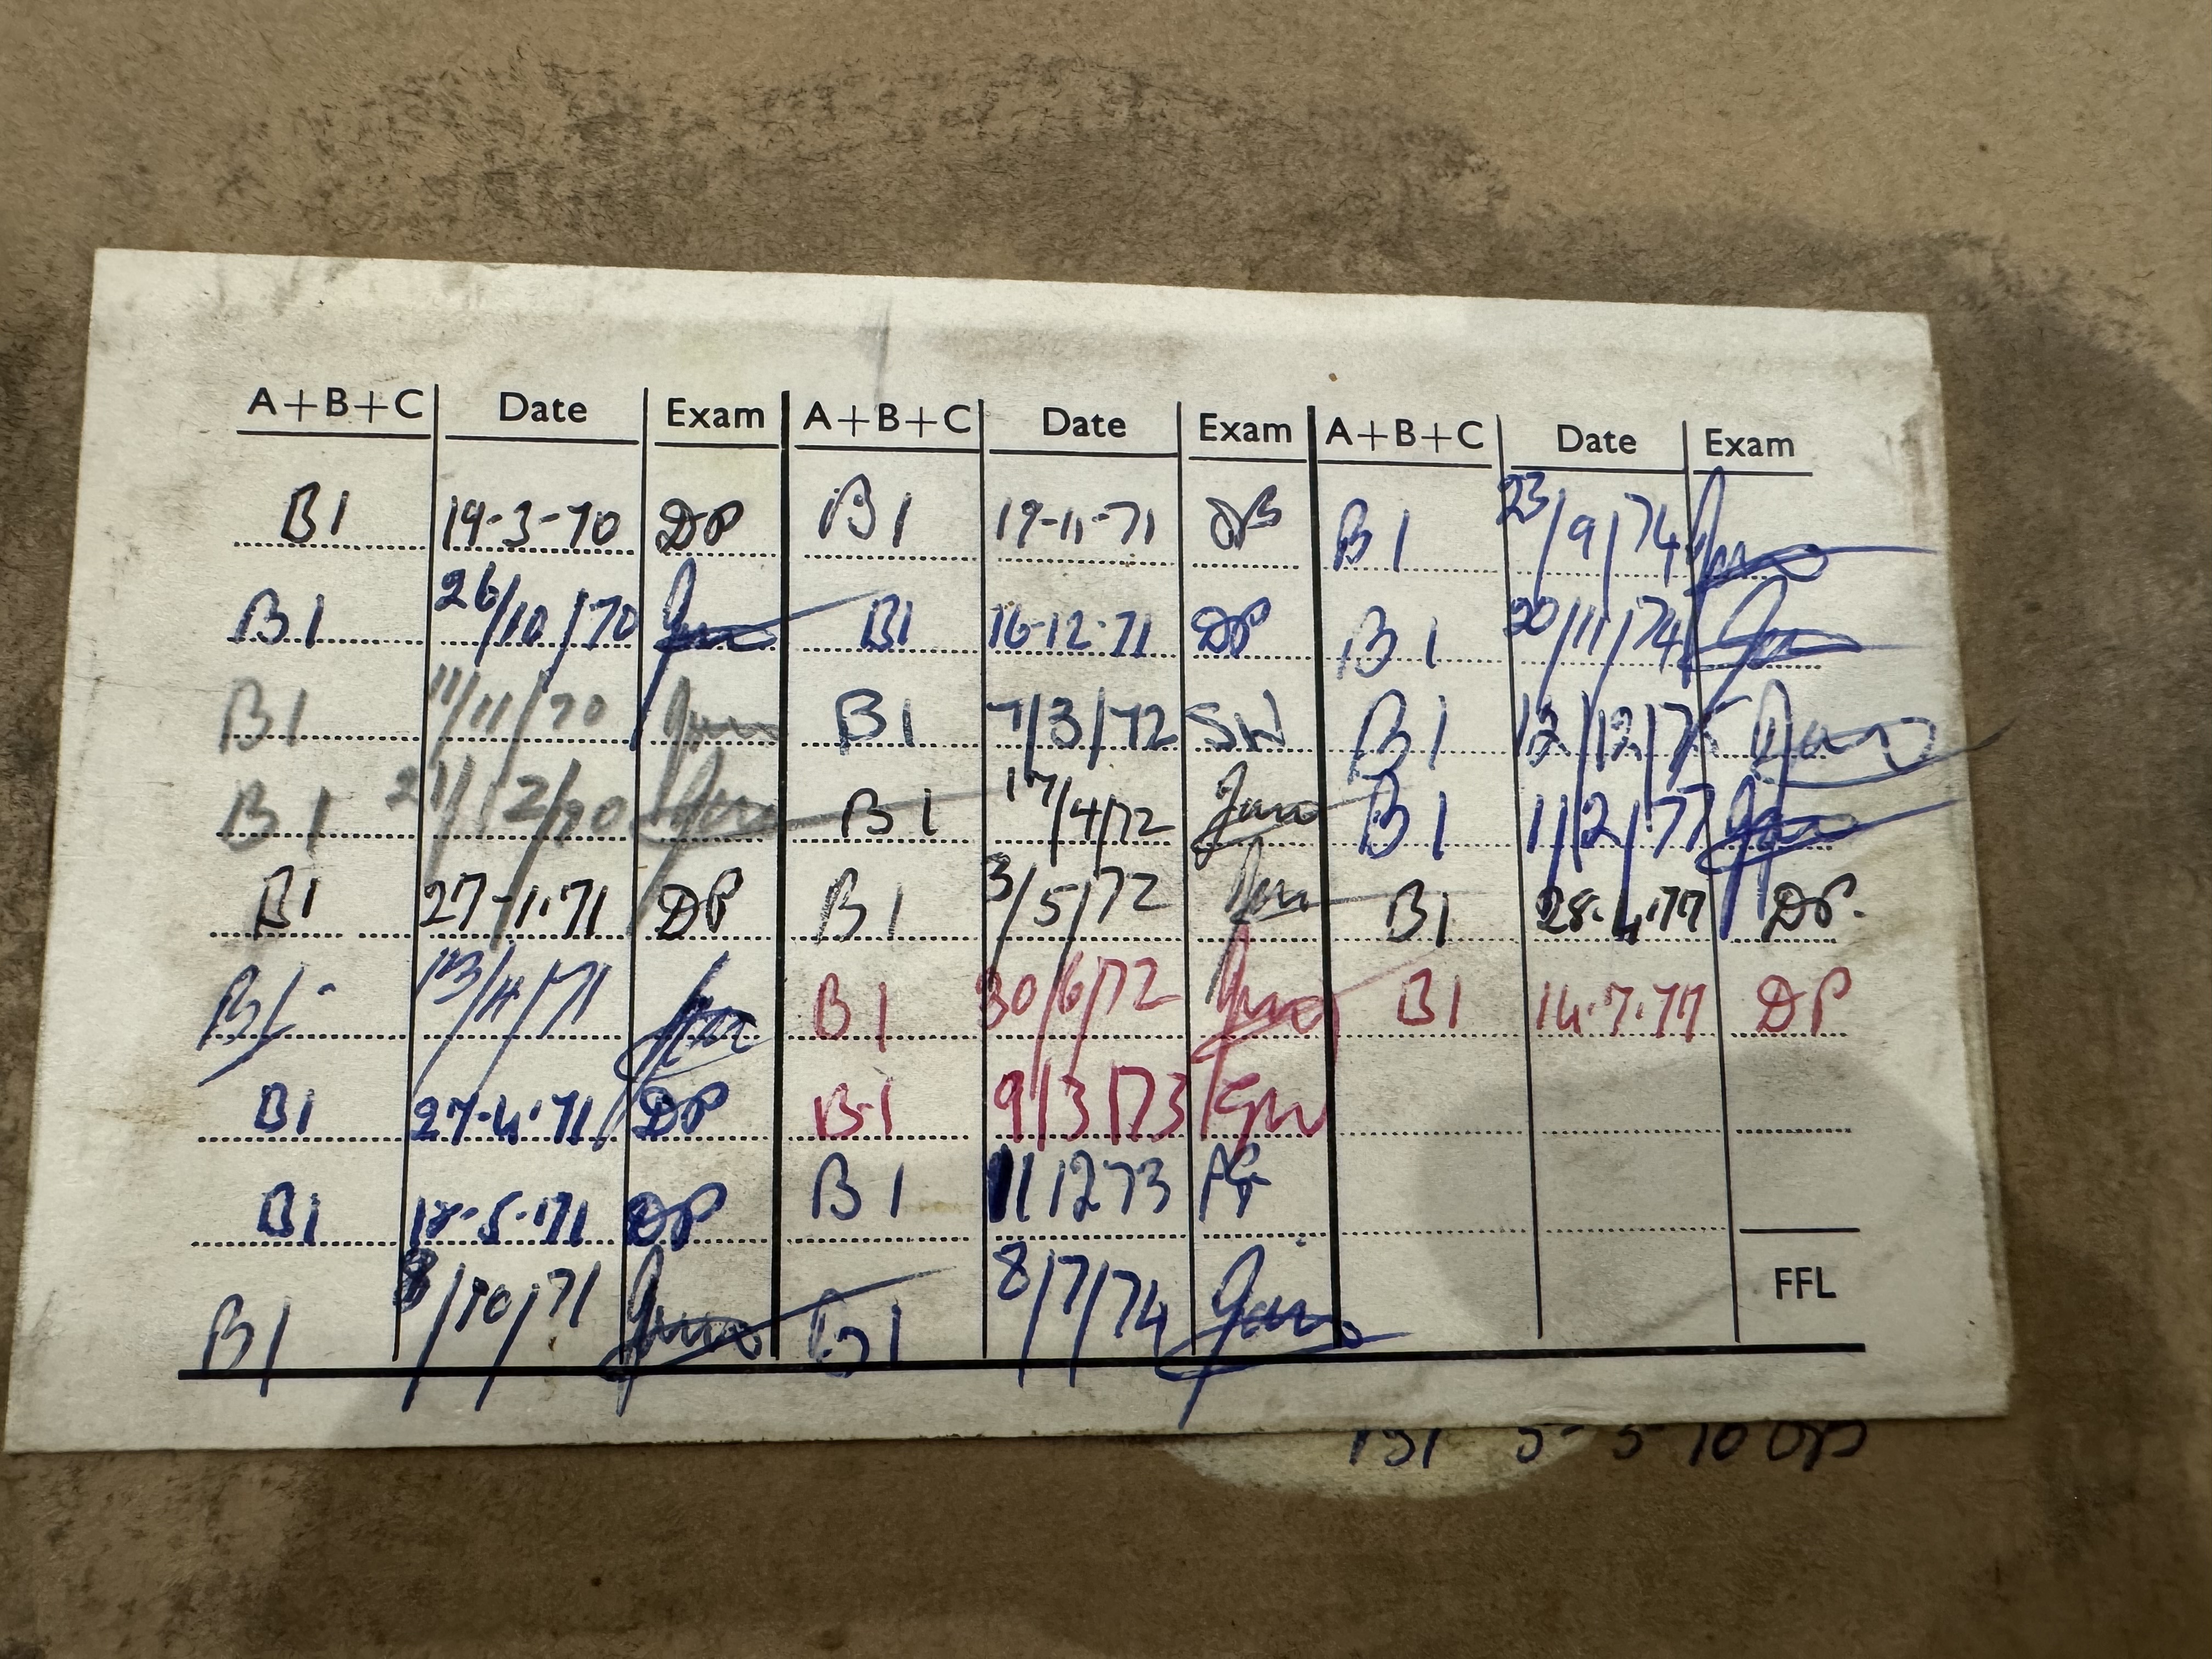 A+B+C Date Exam A+B+C Date Exam A+B+C Date Exam
B1 19-3-70 DP B1 19-11-71 DP B1 23/9/74
B1 26/10/70 B1 16-12-71 DP B1 20/11/74
B1 11/11/70 B1 7/3/72 SW B1 12/12/75
B1 21/12/70 B1 17/4/72 B1 1/2/77
B1 27-1-71 DP B1 3/5/72 B1 28.4.77 DP.
B1 13/4/71 B1 30/6/72 B1 14.7.77 DP
B1 27-4-71 DP B1 9/3/73
B1 18-5-71 DP B1 11 12 73
B1 8/10/71 B1 8/7/74 FFL
B1 5-5-70 DP